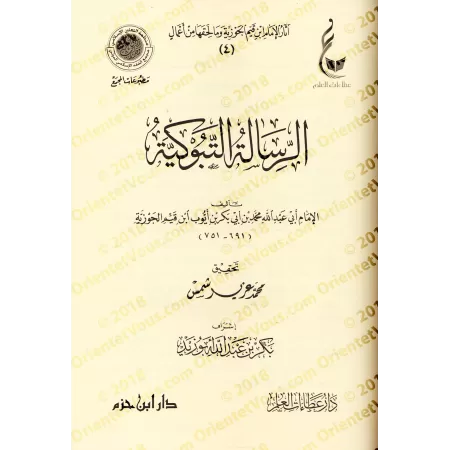 آثار الإمام ابن قيم الجوزية وما لحقها من أعمال
(٤)
عطاءات العلم
مطبوعات المجمع
الرسالة التبوكية
تأليف
الإمام أبي عبد الله محمد بن أبي بكر بن أيوب ابن قيم الجوزية
(٦٩١ - ٧٥١)
تحقيق
محمد عزير شمس
إشراف
بكر بن عبد الله أبو زيد
دار عطاءات العلم
دار ابن حزم
© 2018
OrientetVous.com